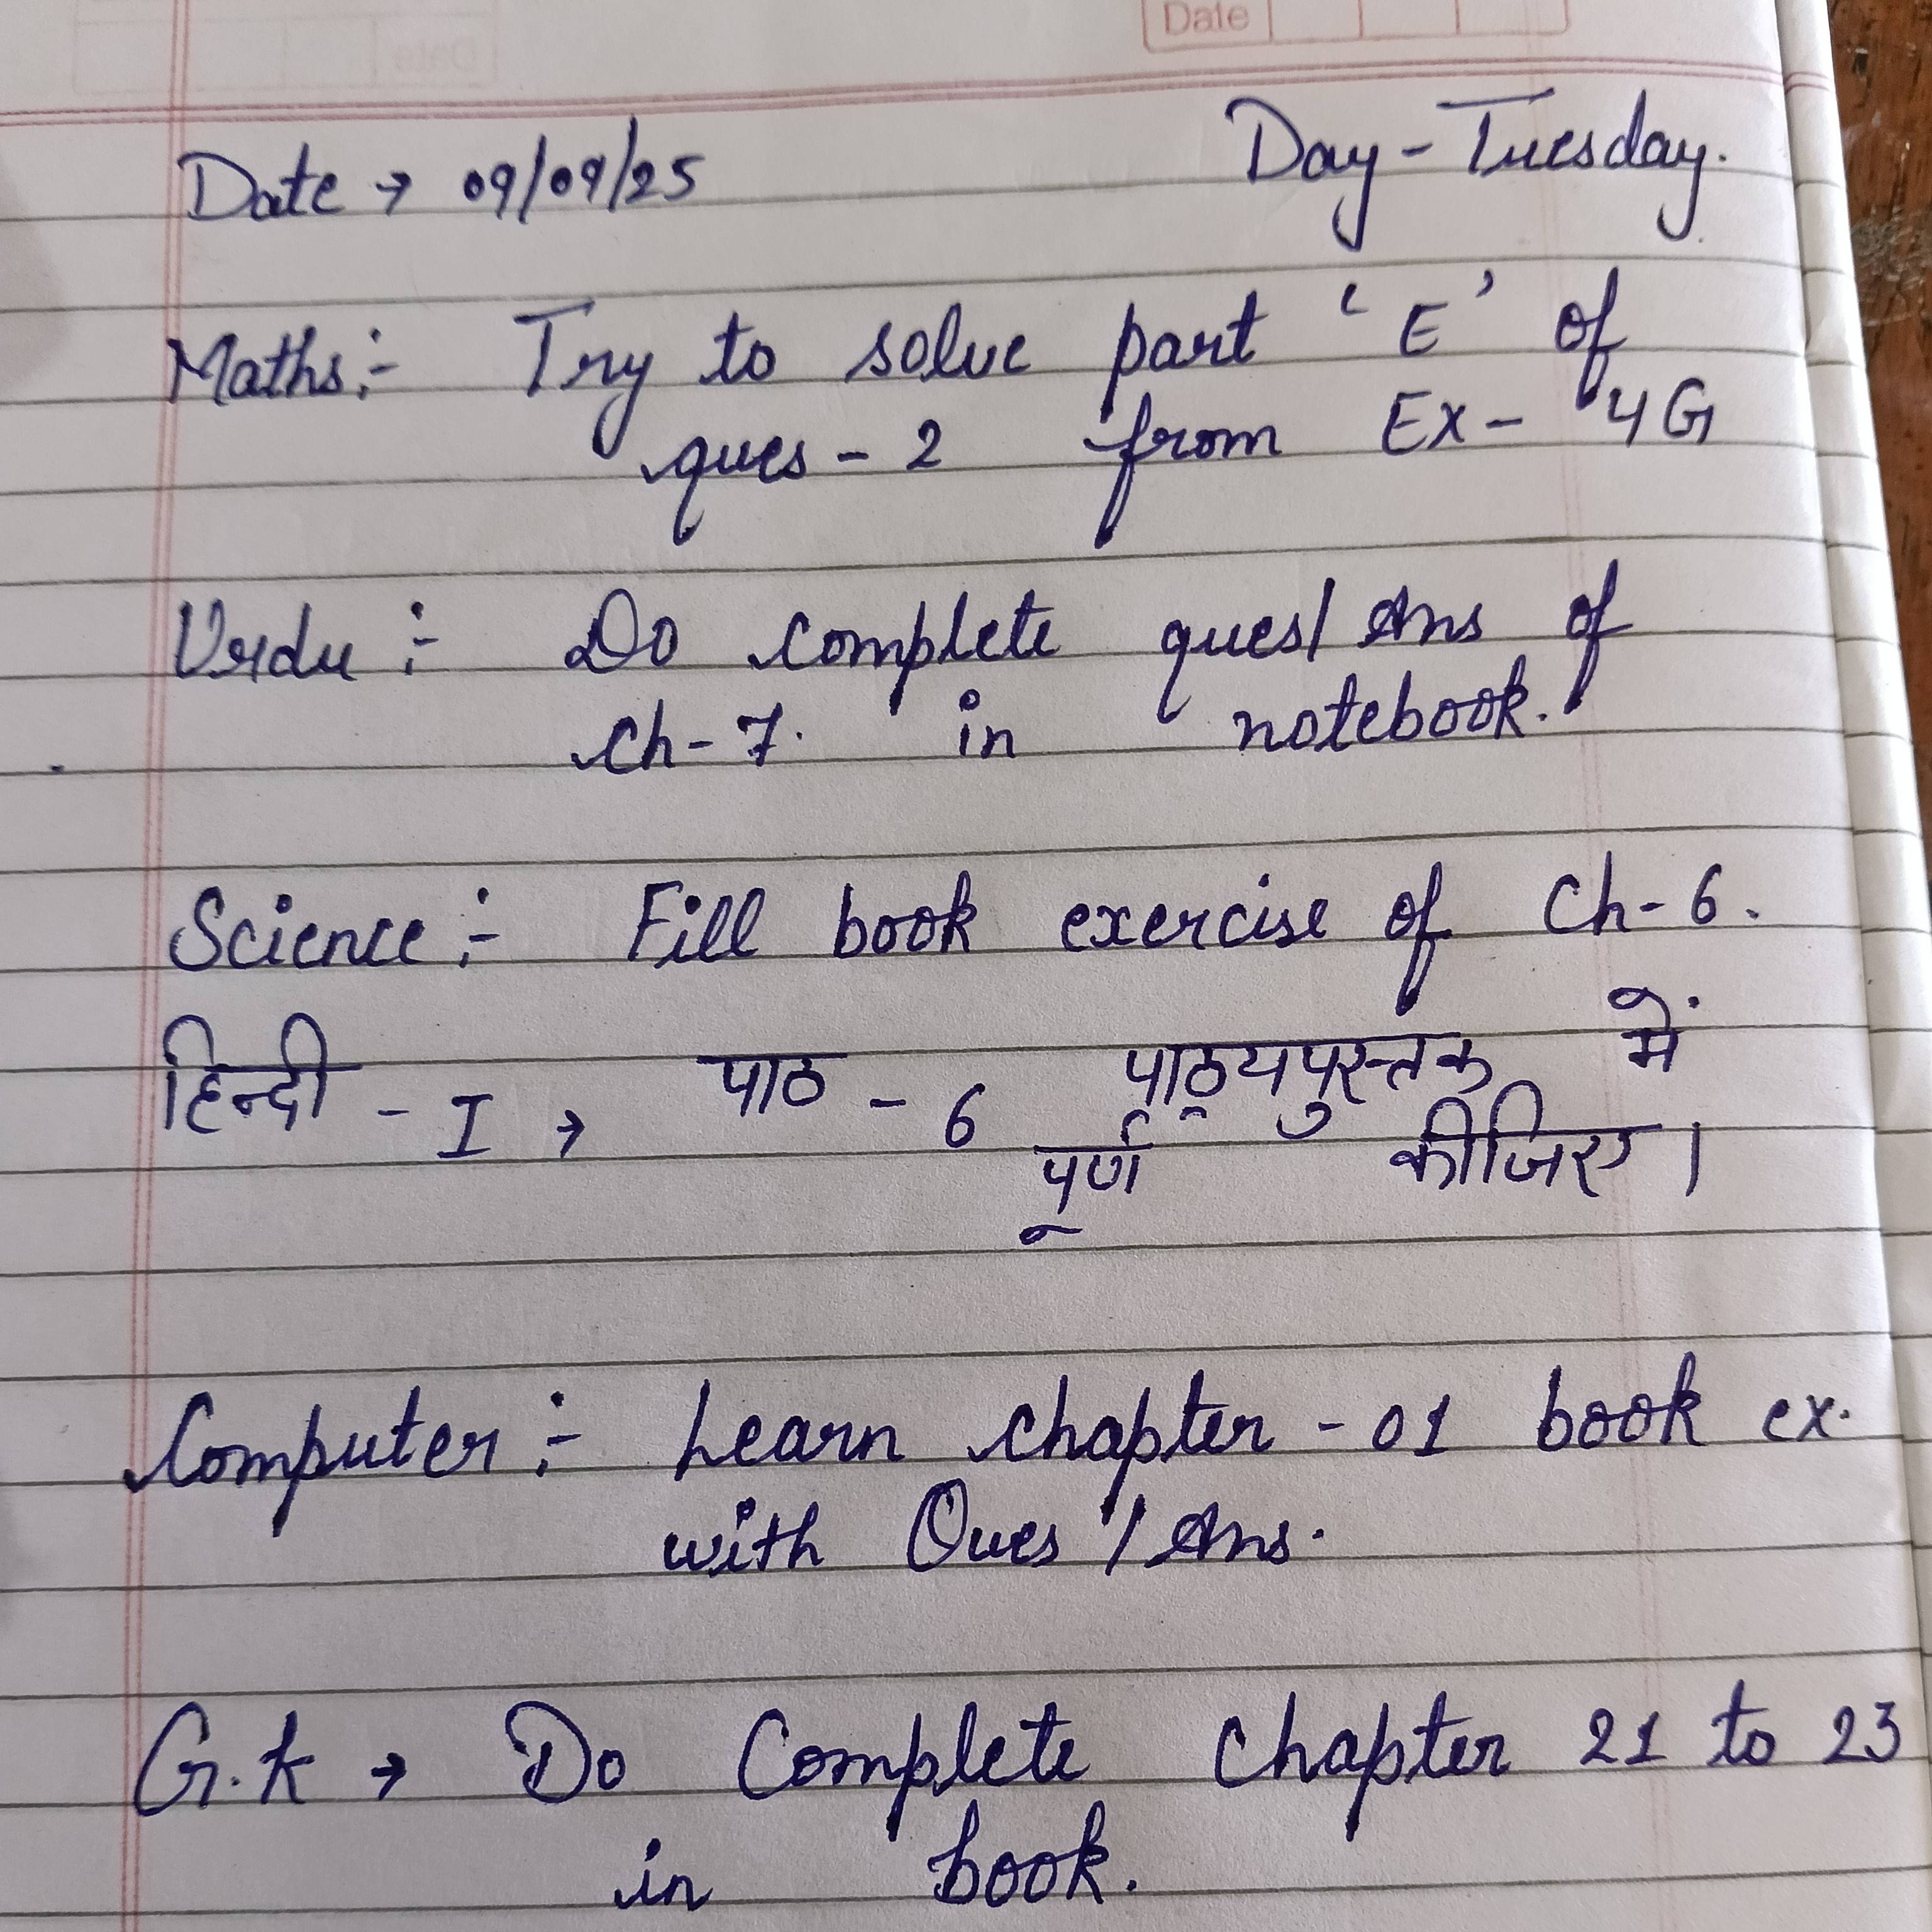 Date
Date → 09/09/25 Day - Tuesday.
Maths:- Try to solve part 'E' of
ques - 2 from Ex - 4G
Urdu :- Do complete ques/Ans of
ch - 7. in notebook.
Science :- Fill book exercise of Ch - 6.
हिन्दी - I → पाठ - 6 पाठ्यपुस्तक में
पूर्ण कीजिए।
Computer :- Learn chapter - 01 book ex.
with Ques / Ans.
G.K → Do Complete Chapter 21 to 23
in book.